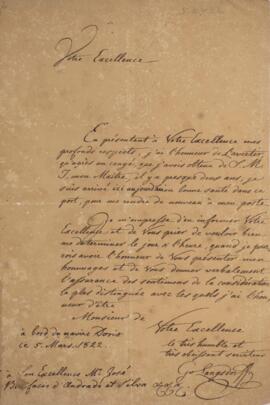 Votre Excellence
En présentant à Votre Excellence mes
profonds respects, j'ai l'honneur de L'avertir,
qu'après un congé, que j'avois obtenu de S. M.
I. mon Maitre, il y a presque deux ans, je
suis arrivé ici aujourdhui bonne santé dans ce
port, pour me rendre de nouveau à mon poste.
Je m'empresse d'en informer Votre
Excellence, et de Vous prier de vouloir bien
me determiner le jour et l'heure, quand je pour-
rois avoir l'honneur de Vous présenter mes
hommages et de Vous donner verbalement
l'assurance des sentimens de la considération
la plus distinguée avec les quels j'ai l'hon-
neur d'être
Monsieur de
Votre Excellence
à bord du navire Doris
le très humble et
ce 5. Mars. 1822.
très obéissant serviteur
G. Langsdorff
à Son Excellence Mr. José
Bonifacio d'Andrada et Silva